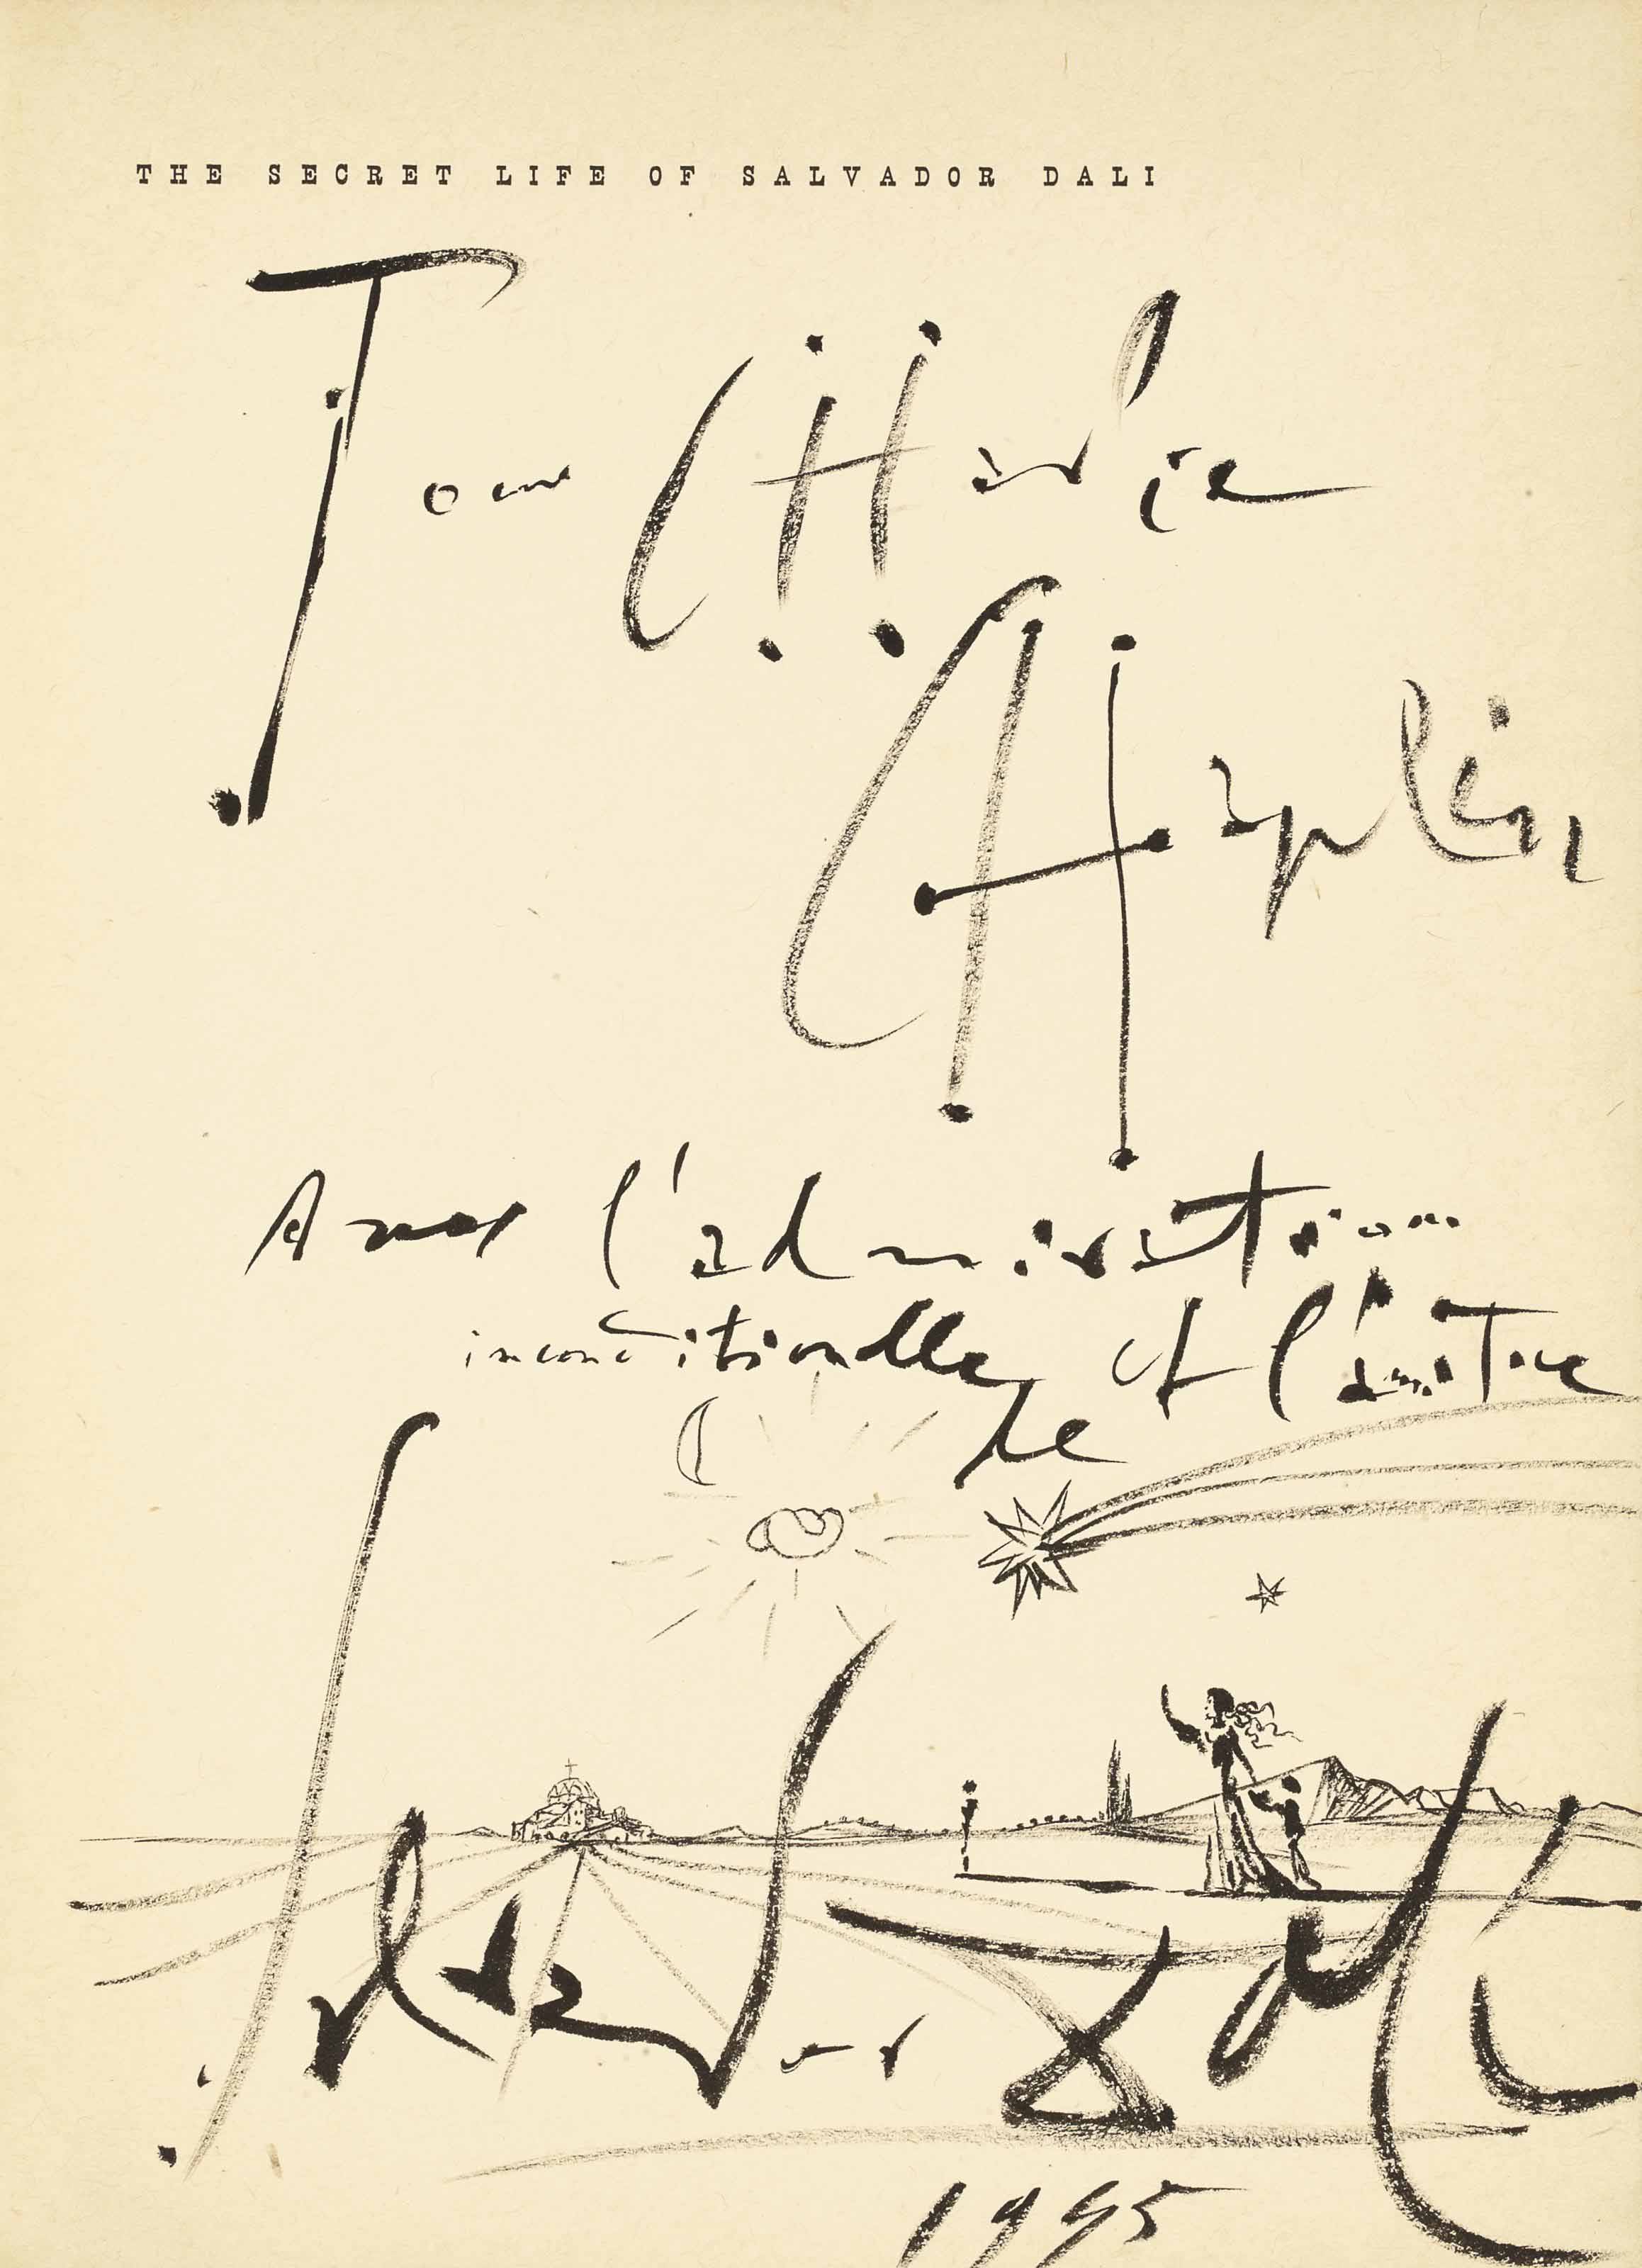 THE SECRET LIFE OF SALVADOR DALI
Pour CHarlie
CHaplin
Avec l'admiration
inconditionelle et l'amitie
de
Salvador Dali
1945